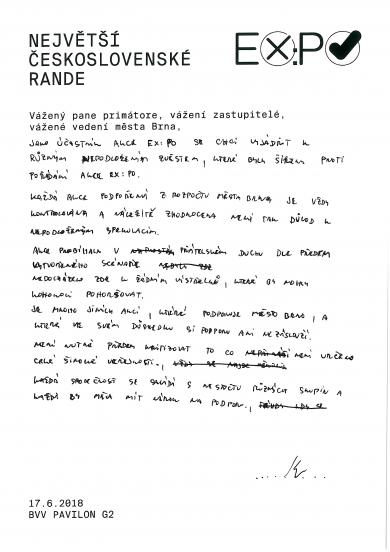 NEJVĚTŠÍ
ČESKOSLOVENSKÉ
RANDE
EX:PO
Vážený pane primátore, vážení zastupitelé,
vážené vedení města Brna,
JAKO ÚČASTNÍK AKCE EX:PO SE CHCI VYJÁDŘIT K
RŮZNÝM NEPODLOŽENÝM ZVĚSTEM, KTERÉ BYLY ŠÍŘENY PROTI
POŘÁDÁNÍ AKCE EX:PO.
KAŽDÁ AKCE PODPOŘENÁ Z ROZPOČTU MĚSTA BRNA JE VŽDY
KONTROLOVÁNA A NÁLEŽITĚ ZHODNOCENA NENÍ TAK DŮVOD K
NEPODLOŽENÝM SPEKULACÍM.
AKCE PROBÍHALA V PŘÁTELSKÉM DUCHU DLE PŘEDEM
VYTVOŘENÉHO SCÉNÁŘE
NEDOCHÁZELO ZDE K ŽÁDNÝM VÝSTŘELKŮM, KTERÉ BY MOHLY
KOHOKOLI POHORŠOVAT.
JE MNOHO JINÝCH AKCÍ, KTERÉ PODPORUJE MĚSTO BRNO, A
KTERÉ VE SVÉM DŮSLEDKU SI PODPORU ANI NEZASLOUŽÍ.
NENÍ NUTNÉ PŘEDEM KRITIZOVAT TO CO NENÍ URČENO
CELÉ ŠIROKÉ VEŘEJNOSTI.,
KAŽDÁ SPOLEČNOST SE SKLÁDÁ S NESPOČTU RŮZNÝCH SKUPIN A
KAŽDÝ BY MĚLA MÍT NÁROK NA PODPORU,
17.6.2018
BVV PAVILON G2